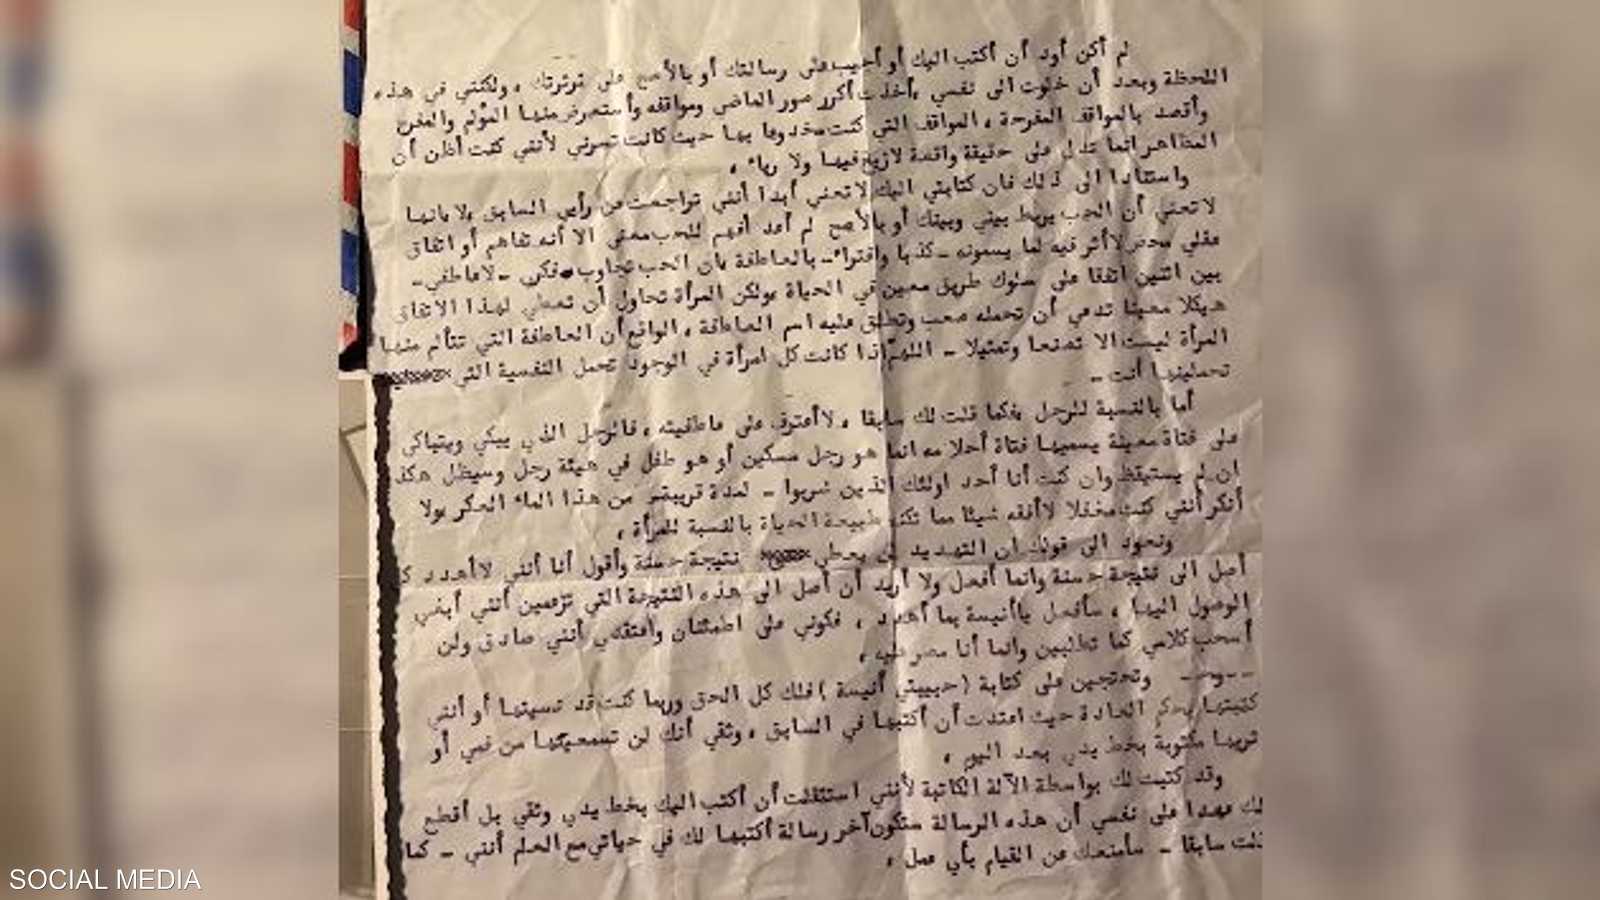 لم أكن أود أن أكتب اليك أو أجيب على رسالتك أو بالأصح على ثرثرتك ، ولكنني في هذه
اللحظة وبعد أن خلوت الى نفسي ،أخذت أكرر صور الماضي ومواقفه وأستعرض منها المؤلم والمفرح
وأقصد بالمواقف المفرحة ، المواقف التي كنت مخدوعا بها حيث كانت تسرني لأنني كنت أظن أن
المظاهر انما تدل على حقيقة واقعة لا زيف فيها ولا رياء ،
واستنادا الى ذلك فان كتابتي اليك لا تعني أبدا أنني تراجعت عن رأيي السابق ،لا بانها
لا تعني أن الحب يربط بيني وبينك أو بالأصح لم أعد أفهم للحب معنى الا أنه تفاهم أو اتفاق
عقلي محض لا أثر فيه لما يسمونه -كذبا وافتراء- بالعاطفة ،ان الحب تجاوب فكري -لا عاطفي-
بين اثنين اتفقا على سلوك طريق معين في الحياة ،ولكن المرأة تحاول أن تعطي لهذا الاتفاق
هيكلا معينا تدعي أن تحمله صعب وتطلق عليه اسم العاطفة ، الواقع أن العاطفة التي تتألم منها
المرأة ليست الا تصنعا وتمثيلا - اللهم اذا كانت كل امرأة في الوجود تحمل النفسية التي
تحملينها أنت -
أما بالنسبة للرجل ،فكما قلت لك سابقا ، لا أعترف على عاطفيته ، فالرجل الذي يبكي ويتباكى
على فتاة معينة يسميها فتاة أحلامه انما هو رجل مسكين أو هو طفل في هيئة رجل وسيظل هكذ
ان لم يستيقظ وان كنت أنا أحد اولئك الذين شربوا - لمدة قريبة - من هذا الماء العكر ،ولا
أنكر أنني كنت مغفلا لا أفقه شيئا مما تكنه طبيعة الحياة بالنسبة للمرأة ،
ونعود الى قولك ان التهديد لن يعطي نتيجة حسنة وأقول أنا أنني لا أهدد ك
أصل الى نتيجة حسنة وانما أفعل ولا أريد أن أصل الى هذه النتيجة التي تزعمين أنني أبغي
الوصول اليها ، سأفعل يا أنيسة بما أهدد ، فكوني على اطمئنان وأعتقدي أنني صادق ولن
أسحب كلامي كما تطلبين وانما أنا مصر عليه ،
وتحتجين على كتابة (حبيبتي أنيسة) فلك كل الحق وربما كنت قد نسيتها أو أنني
كتبتها بحكم العادة حيث اعتدت أن أكتبها في السابق ، وثقي أنك لن تسمعيها من فمي أو
تريها مكتوبة بخط يدي بعد اليوم ،
وقد كتبت لك بواسطة الآلة الكاتبة لأنني استثقلت أن أكتب اليك بخط يدي وثقي بل أقطع
لك عهدا على نفسي أن هذه الرسالة ستكون آخر رسالة أكتبها لك في حياتي مع العلم أنني - كما
قلت سابقا - سأمنعك عن القيام بأي عمل ،
SOCIAL MEDIA